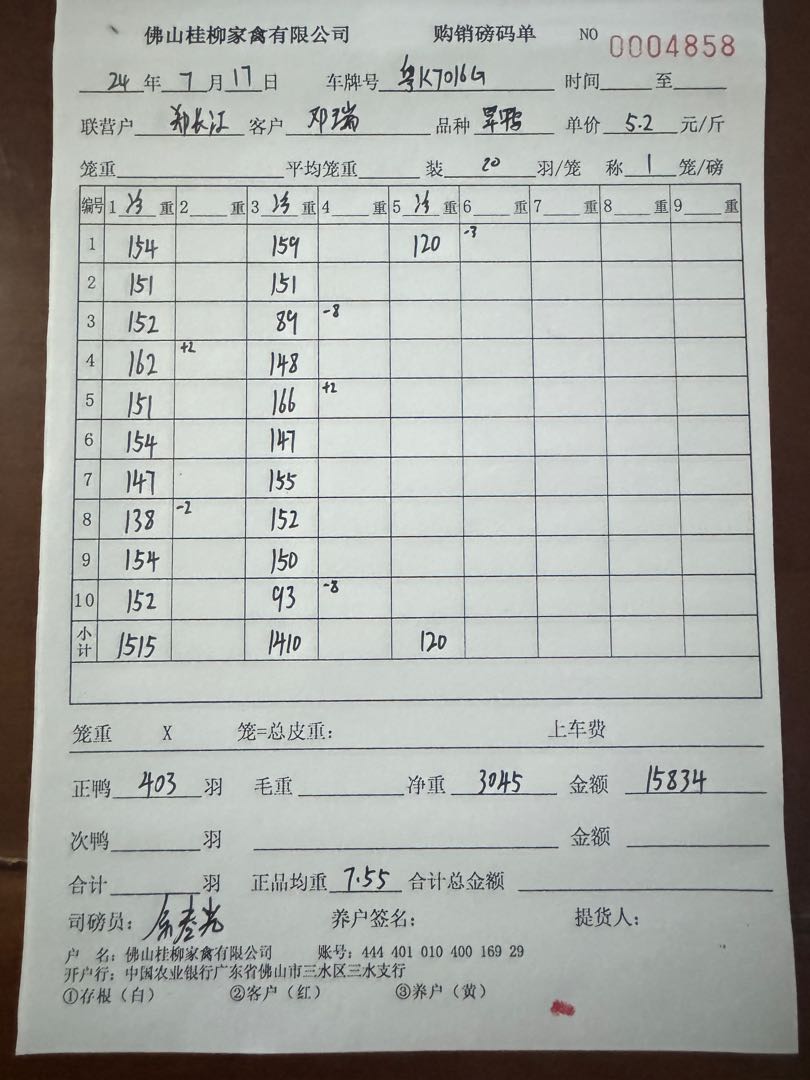 佛山桂柳家禽有限公司 购销磅码单 NO 0004858
24年7月17日 车牌号 粤K7016G 时间 至
联营户 郑长江 客户 邓瑞 品种 旱鸭 单价 5.2 元/斤
笼重 平均笼重 装 20 羽/笼 称 1 笼/磅
编号 1 净 重 2 重 3 净 重 4 重 5 净 重 6 重 7 重 8 重 9 重
1 154 159 120 -3
2 151 151
3 152 89 -8
4 162 +2 148
5 151 166 +2
6 154 147
7 147 155
8 138 -2 152
9 154 150
10 152 93 -8
小计 1515 1410 120
笼重 X 笼=总皮重: 上车费
正鸭 403 羽 毛重 净重 3045 金额 15834
次鸭 羽 金额
合计 羽 正品均重 7.55 合计总金额
司磅员: 养户签名: 提货人:
户 名: 佛山桂柳家禽有限公司 账号: 444 401 010 400 169 29
开户行: 中国农业银行广东省佛山市三水区三水支行
①存根(白) ②客户(红) ③养户(黄)